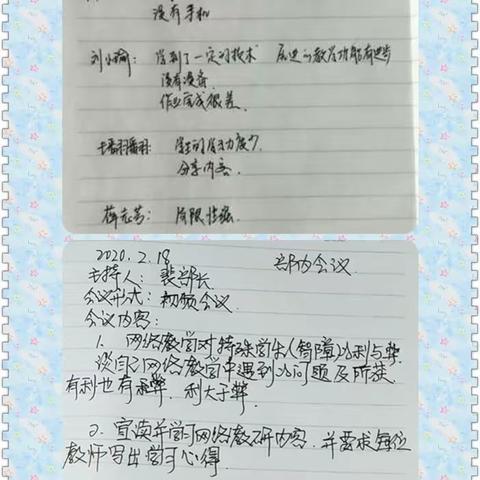 没有手机
刘小瑜: 学到了一定的技术
没有准备.
作业完成很差.
分享内容.
局限性强.
2020.2.18 部内会议.
主持人: 裴部长.
会议形式: 视频会议.
会议内容:
1. 网络教学对特殊学生(智障)的利与弊.
谈自己网络教学中遇到的问题及所获.
有利也有弊. 利大于弊.
2. 宣读并学习网络教研内容. 并要求每位
教师写出学习心得.